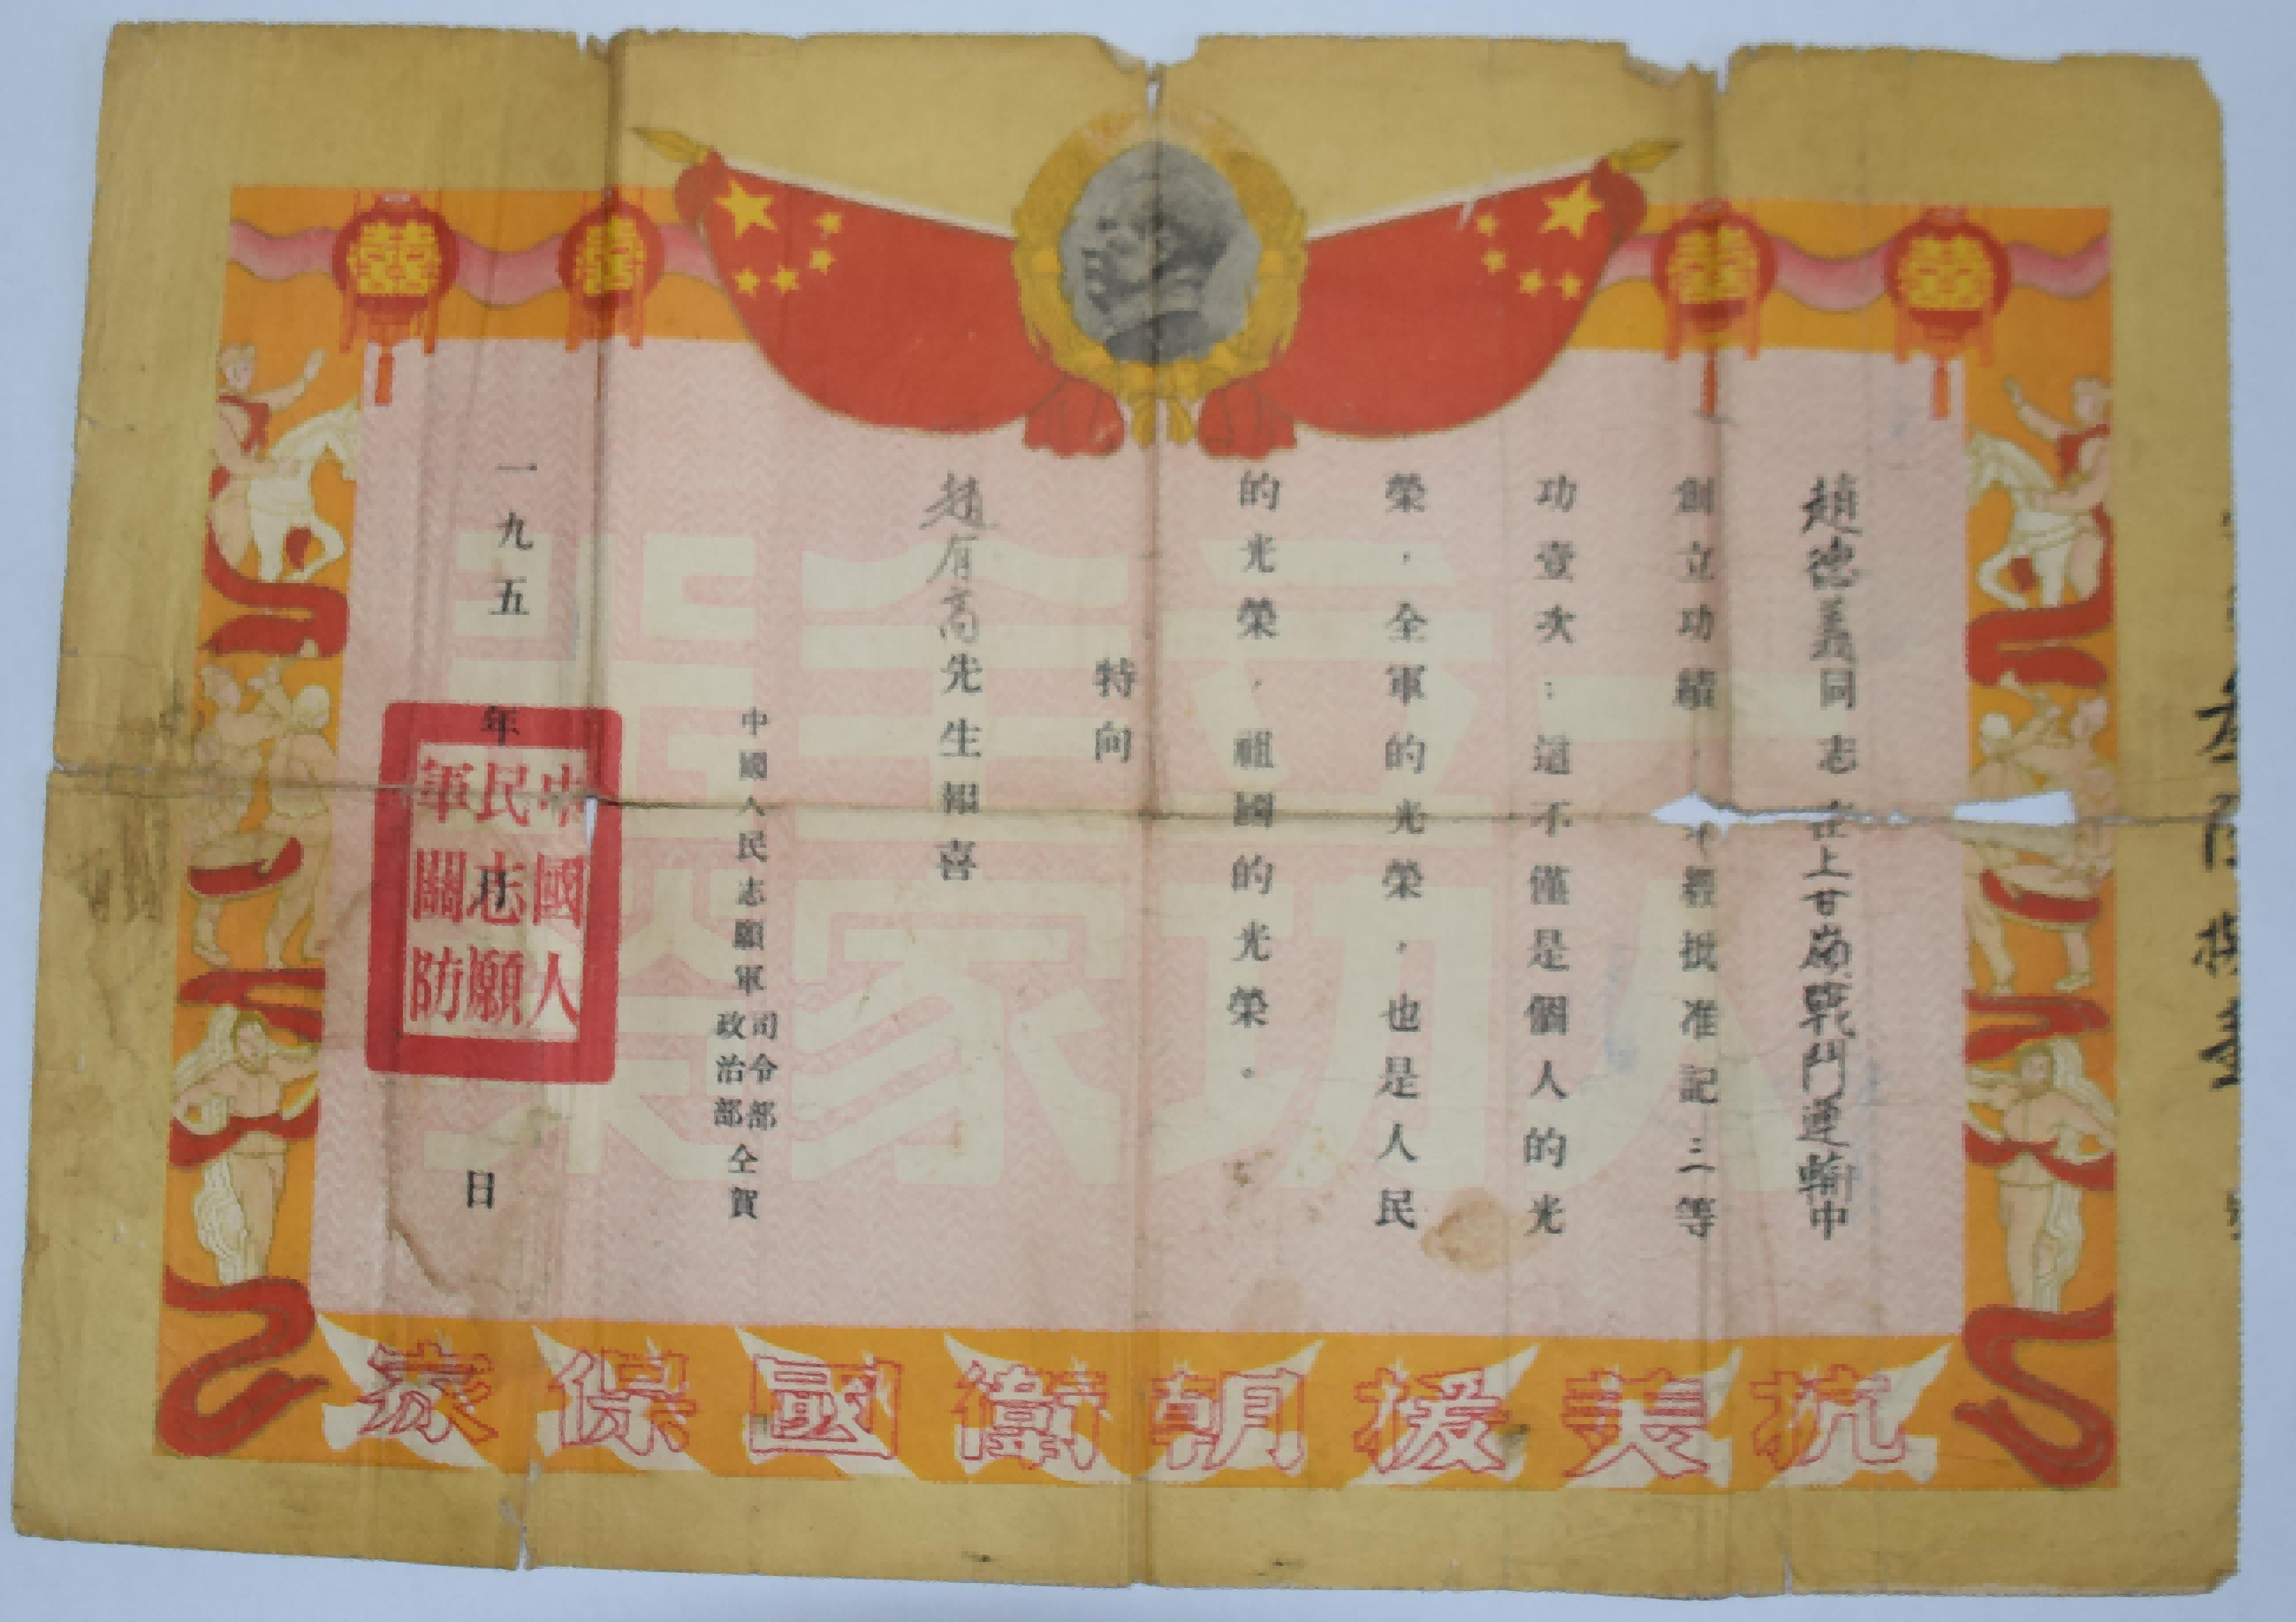 趙德義同志在上甘嶺戰鬥運輸中
創立功績，業經批准記三等
功壹次；這不僅是個人的光
榮，全軍的光榮，也是人民
的光榮，祖國的光榮。
特向
趙有高先生報喜
中國人民志願軍司令部政治部仝賀
一九五 年 月 日
中國人民志願軍關防
一人立功
全家光榮
抗美援朝衛國保家
囍
囍
囍
囍